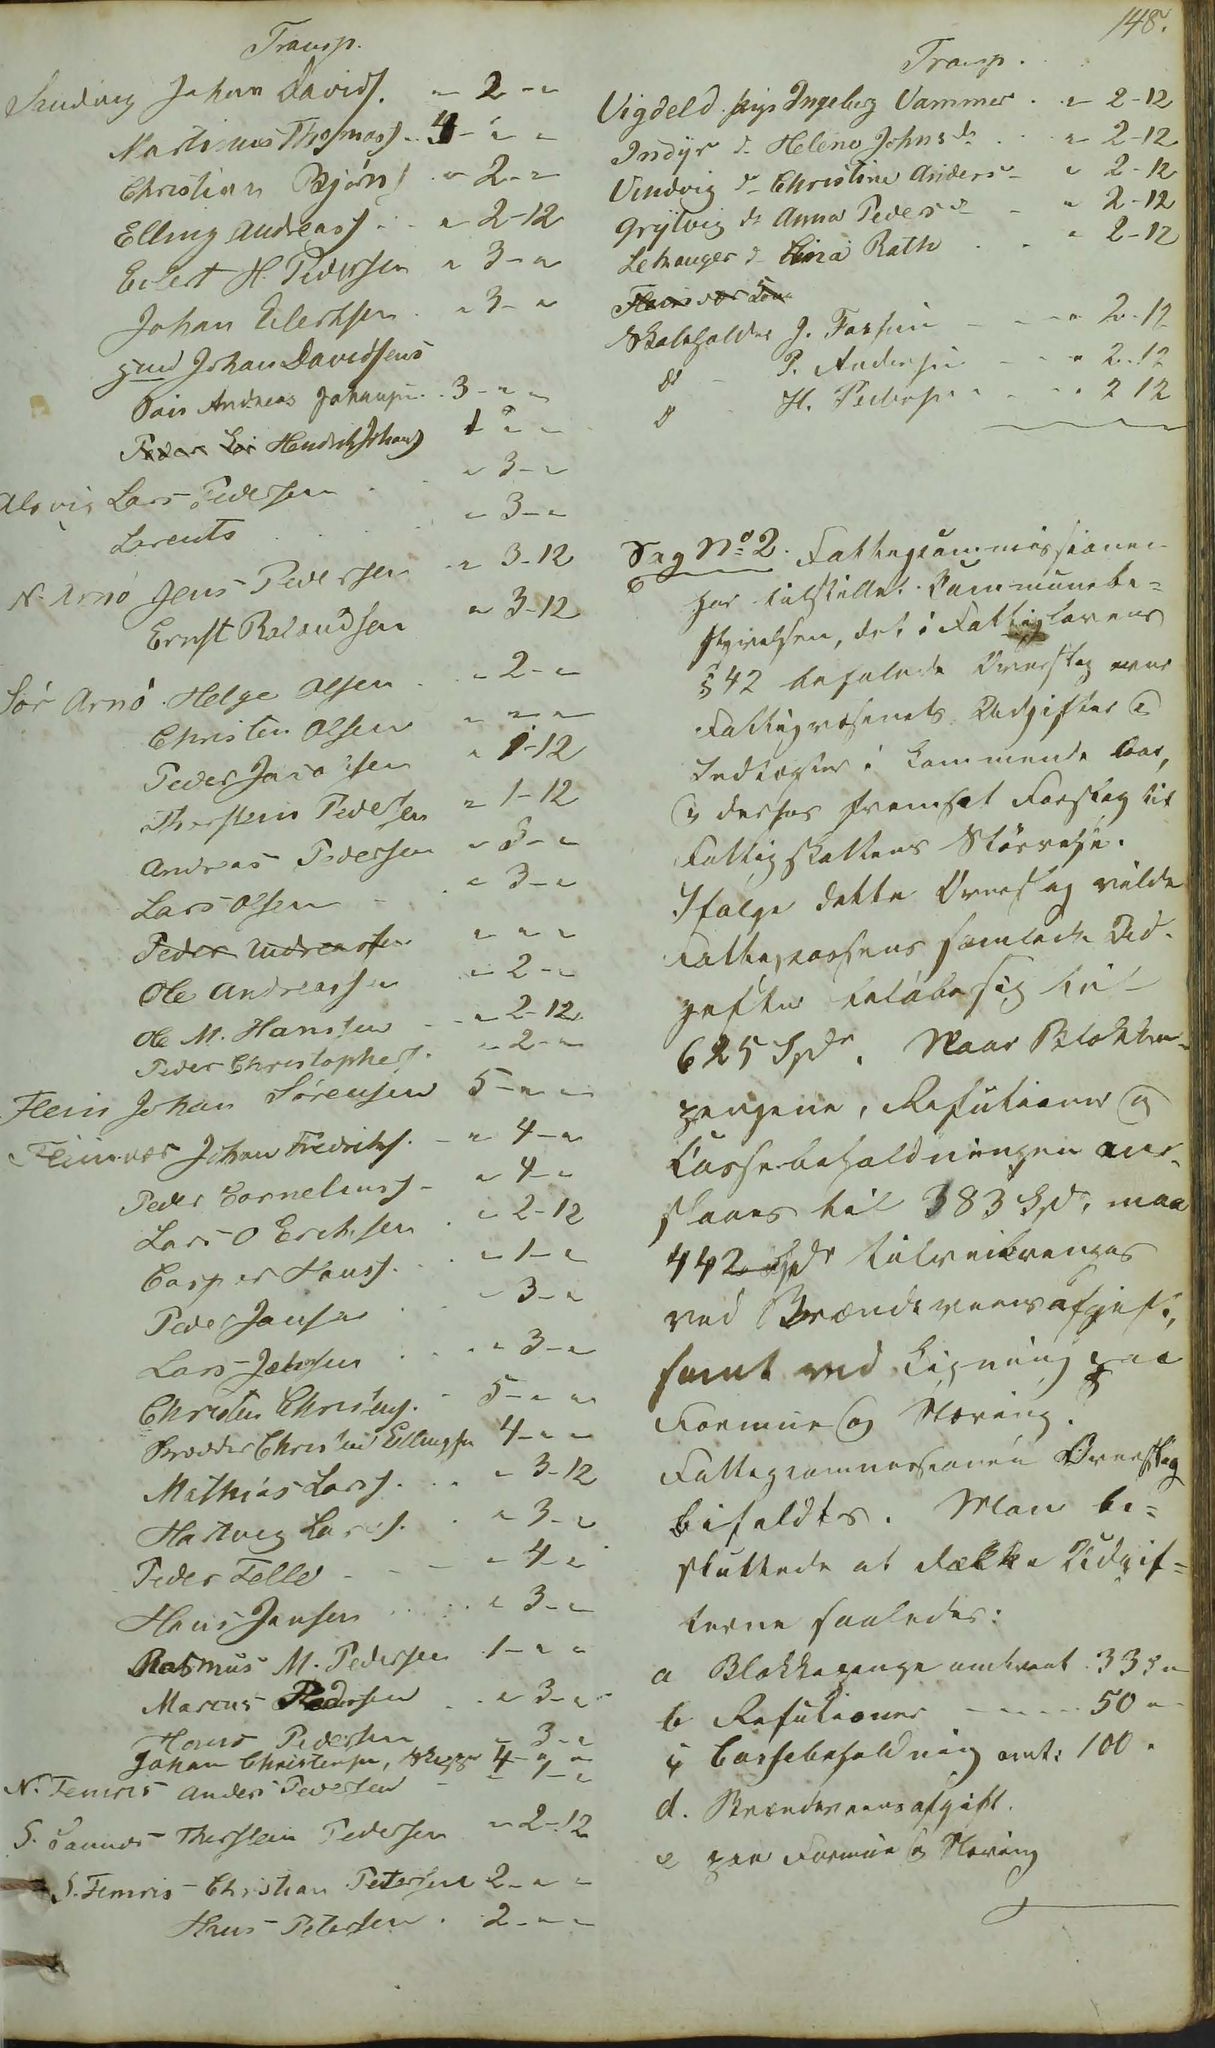 148.
Transp.
Sandvig Johan Davids. " 2 - "
Martinus Thomass. 4 - " "
Christian Bjørns " 2 - "
Elling Andreass. " 2 - 12
Eilert H. Pedersen " 3 - "
Johan Eilertsen " 3 - "
gmd Johan Davidsens
Andreas Johansen 3 - " "
Hendrik Johans 1 " "
Alsvig Lars Pedersen " 3 - "
Lorents " 3 - "
N. Arnø Jens Pedersen " 3 - 12
Ernst Rolandsen " 3 - 12
Sør Arnø Helge Olsen " 2 - "
Christen Olsen " " "
Peder Jacobsen " 1 - 12
Thorstein Pedersen " 1 - 12
Andreas Pedersen " 3 - "
Lars Olsen " 3 - "
Peder Andreassen " " "
Ole Andreassen " 2 - "
Ole M. Hansen " 2 - 12
Peder Christophers. " 2 - "
Flein Johan Sørensen 5 - " "
Fleinvær Johan Fredriks. " 4 - "
Peder Corneliuss. " 4 - "
Lars O Erichsen " 2 - 12
Casper Hanss. " 1 - "
Peder Jansen " 3 - "
Lars " 3 - "
Christen Christens. 5 - " "
Christen Ellingsen 4 - " "
Mathias Larss. " 3 - 12
Hartvig Larss. " 3 - "
Peder Felle " 4 - "
Hans Jensen " 3 - "
Rasmus M. Pedersen 1 - " "
Marcus Pedersen " 3 - "
Hans Pedersen " 3 - "
Johan Christensen, 4 - " "
N. Femris Anders Pedersen " 1 - "
S. Thorstein Pedersen " 2 - 12
S. Femris Christian Petersen 2 - " "
Hans Petersen 2 - " "
Transp.
Vigdeld pige Ingeborg Vammer " 2 - 12
Indyr do Helene Johnsdr " 2 - 12
Vindvig do Christine Anders " 2 - 12
Grytvig do Anna Pedersdr " 2 - 12
Lekanger do Lina Rath " 2 - 12
Fleinvær
Skoleholder J. Forsum " 2 - 12
do P. Andersen " 2 - 12
do H. Pedersen " 2 12
Sag No 2. Fattigcommissionen
har tilstillet Communebe-
styrelsen, det i Fattiglovens
§ 42 befalede Overslag over
Fattigvæsenets Udgifter og
Indtægter i kommende Aar,
og derhos fremsat Forslag til
Fattigskattens Størrelse.
Ifølge dette Overslag vilde
Fattigkassens samlede Ud-
gifter beløbe sig til
625 Spdr. Naar Blokke-
pengene, Refusioner og
Cassebeholdningen an-
slaaes til 383 Spd, maa
442 Spdr tilveiebringes
ved Brændeviinsafgift,
samt ved Ligning paa
Formue og Næring.
Fattigcommissionens Overslag
bifaldtes. Man be-
sluttede at dække Udgif-
terne saaledes:
a Blokkepenge omtrent 333 "
b Refusioner 50 "
c Cassebeholdning omt: 100 "
d. Brændeviinsafgift.
e paa Formue og Næring